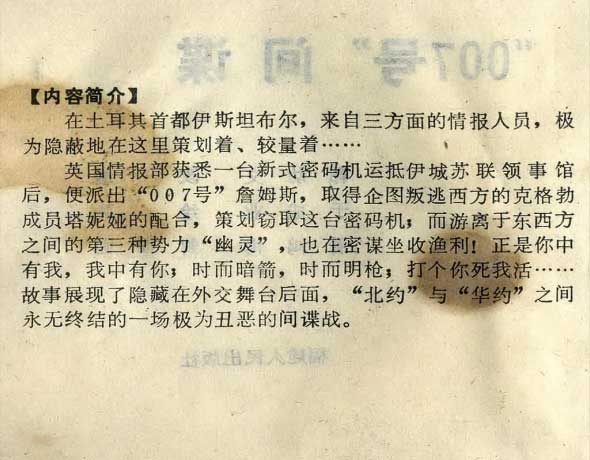 “007号”间谍
【内容简介】
在土耳其首都伊斯坦布尔，来自三方面的情报人员，极
为隐蔽地在这里策划着、较量着……
英国情报部获悉一台新式密码机运抵伊城苏联领事馆
后，便派出“007号”詹姆斯，取得企图叛逃西方的克格勃
成员塔妮娅的配合，策划窃取这台密码机；而游离于东西方
之间的第三种势力“幽灵”，也在密谋坐收渔利！正是你中
有我，我中有你；时而暗箭，时而明枪；打个你死我活……
故事展现了隐藏在外交舞台后面，“北约”与“华约”之间
永无终结的一场极为丑恶的间谍战。
福建人民出版社